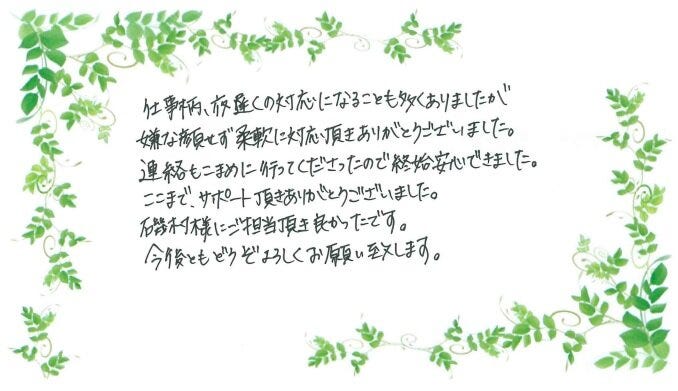 仕事柄、夜遅くの対応になることも多くありましたが
嫌な顔せず柔軟に対応頂きありがとうございました。
連絡もこまめに行ってくださったので終始安心できました。
ここまで、サポート頂きありがとうございました。
磯村様にご担当頂き良かったです。
今後ともどうぞよろしくお願い致します。